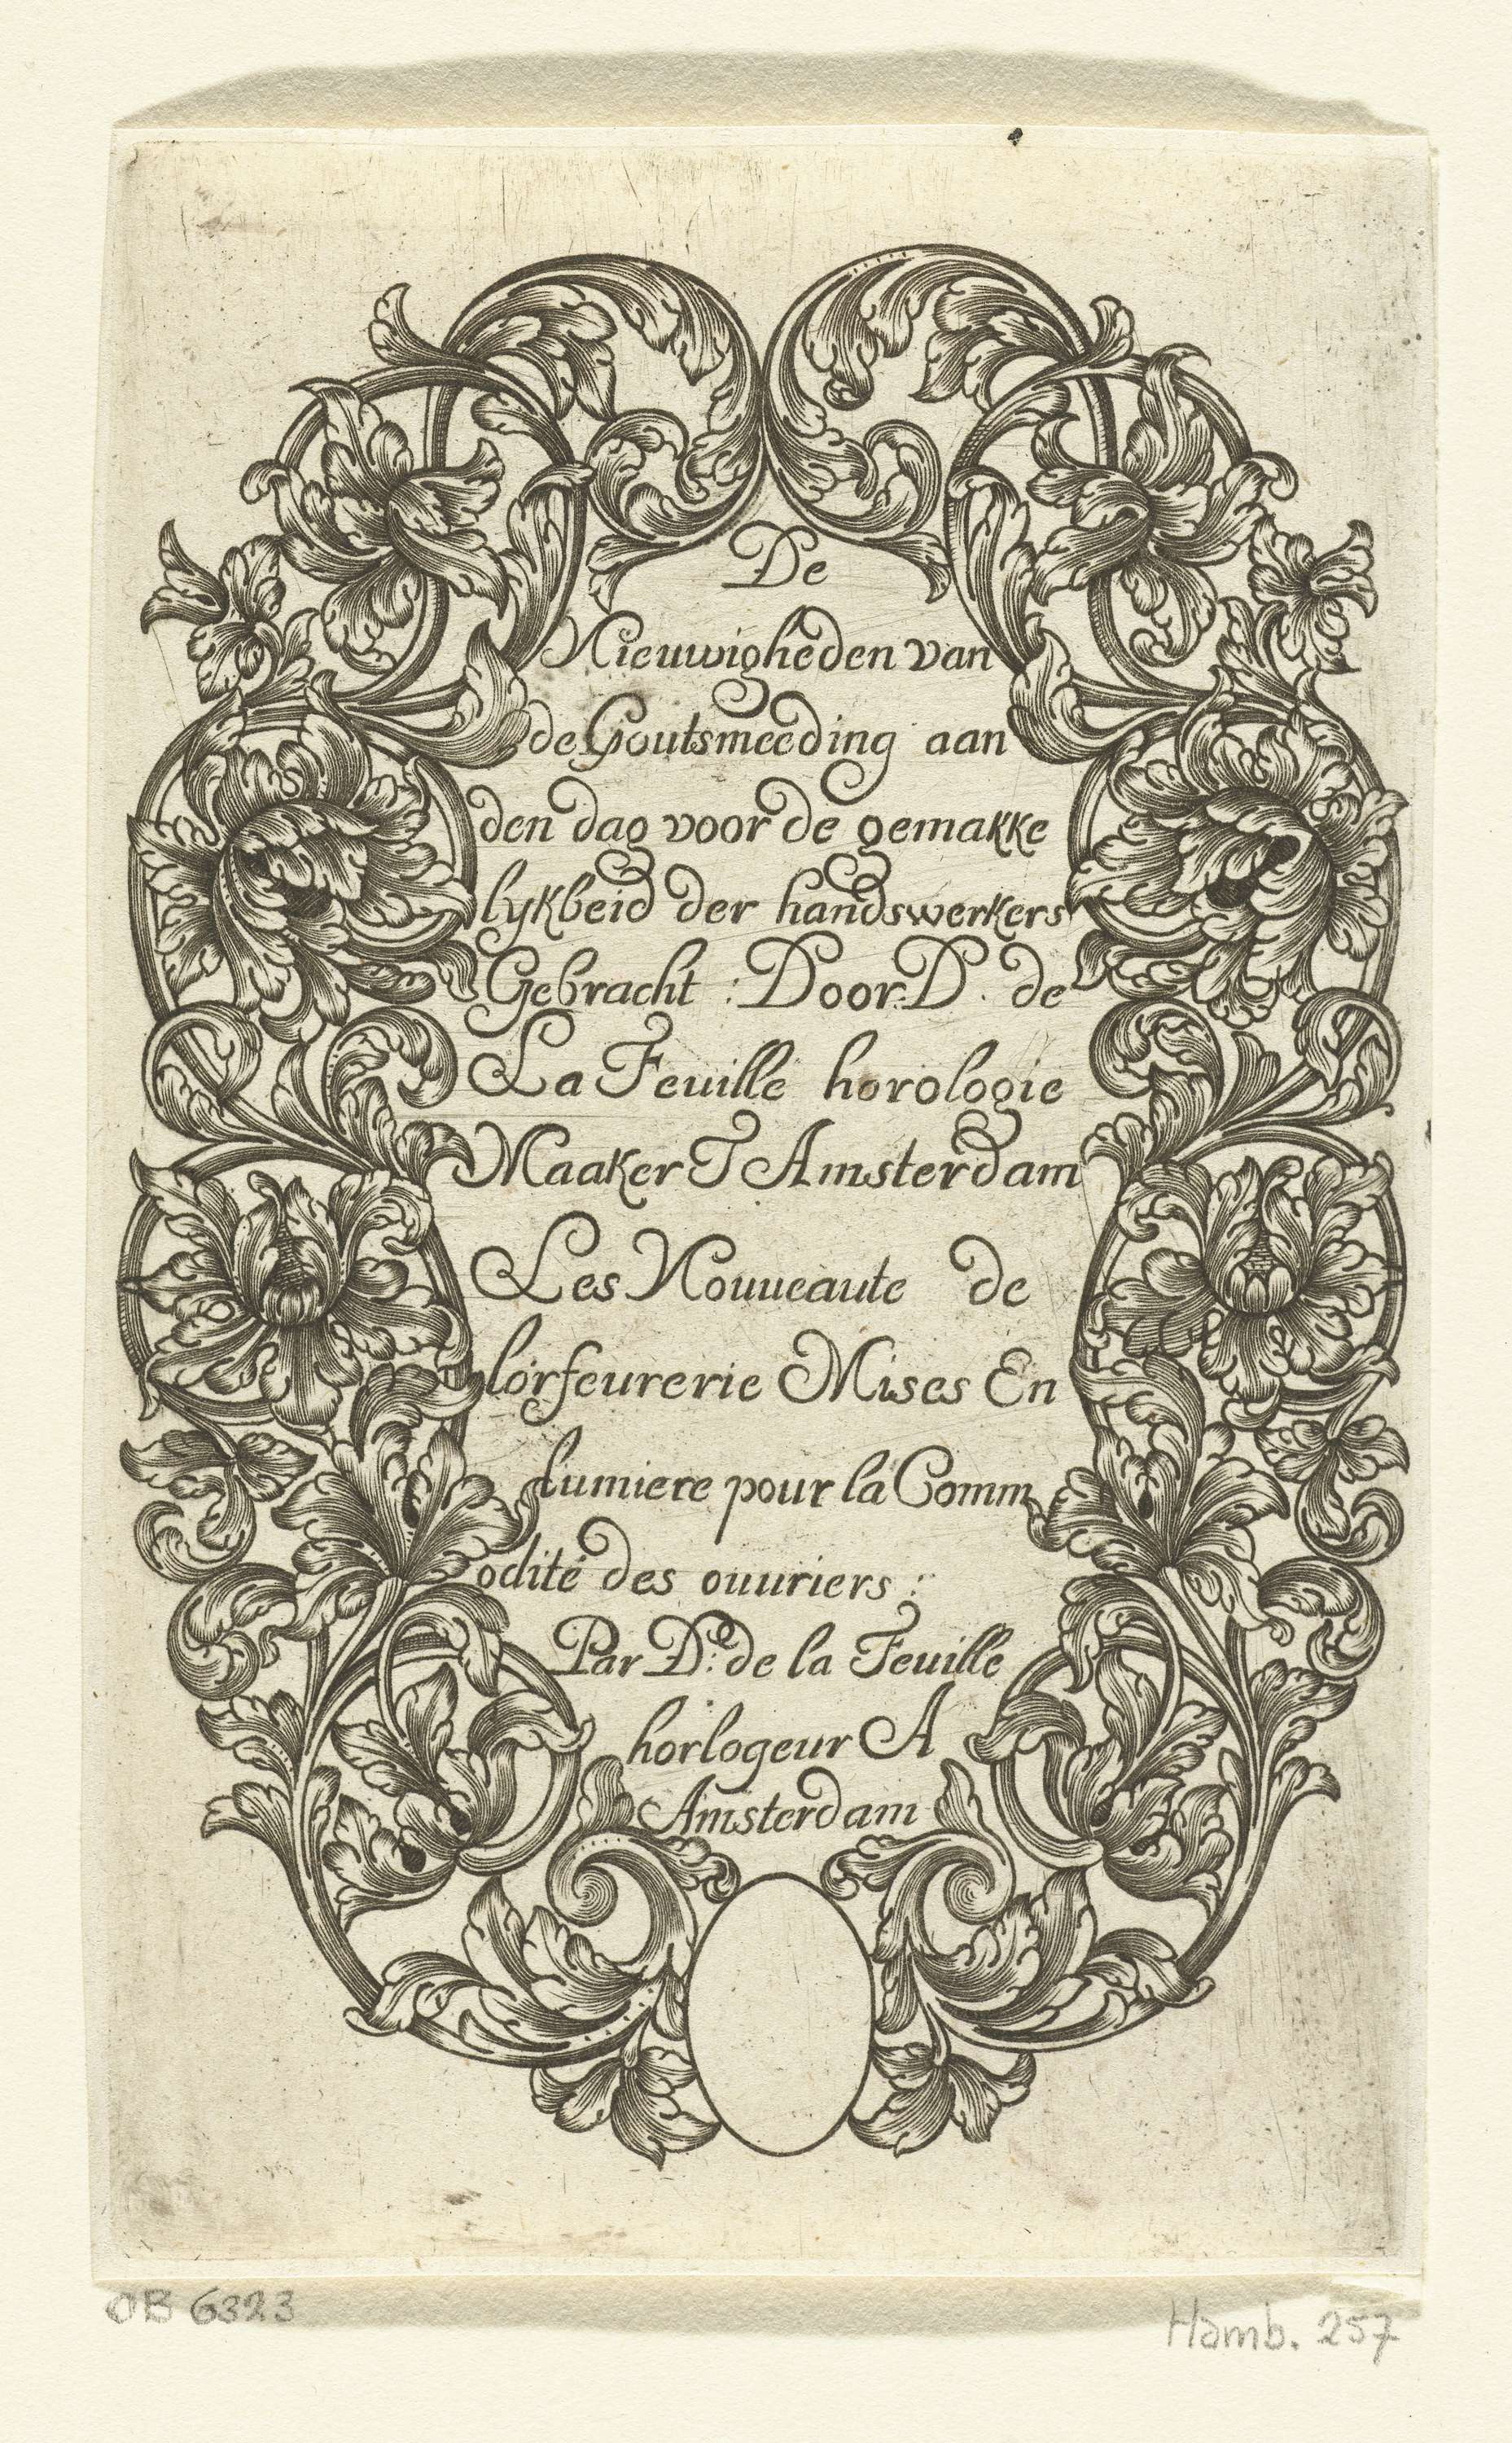 De
Nieuwigheden van
de Goutsmeeding aan
den dag voor de gemakke
lykbeid der handswerkers
Gebracht : Door D. de
La Feuille horologie
Maaker T Amsterdam
Les Nouueaute de
lorfeurerie Mises En
lumiere pour la Comm
odité des ouuriers :
Par D.e de la Feuille
horlogeur A
Amsterdam
OB 6323
Hamb. 257